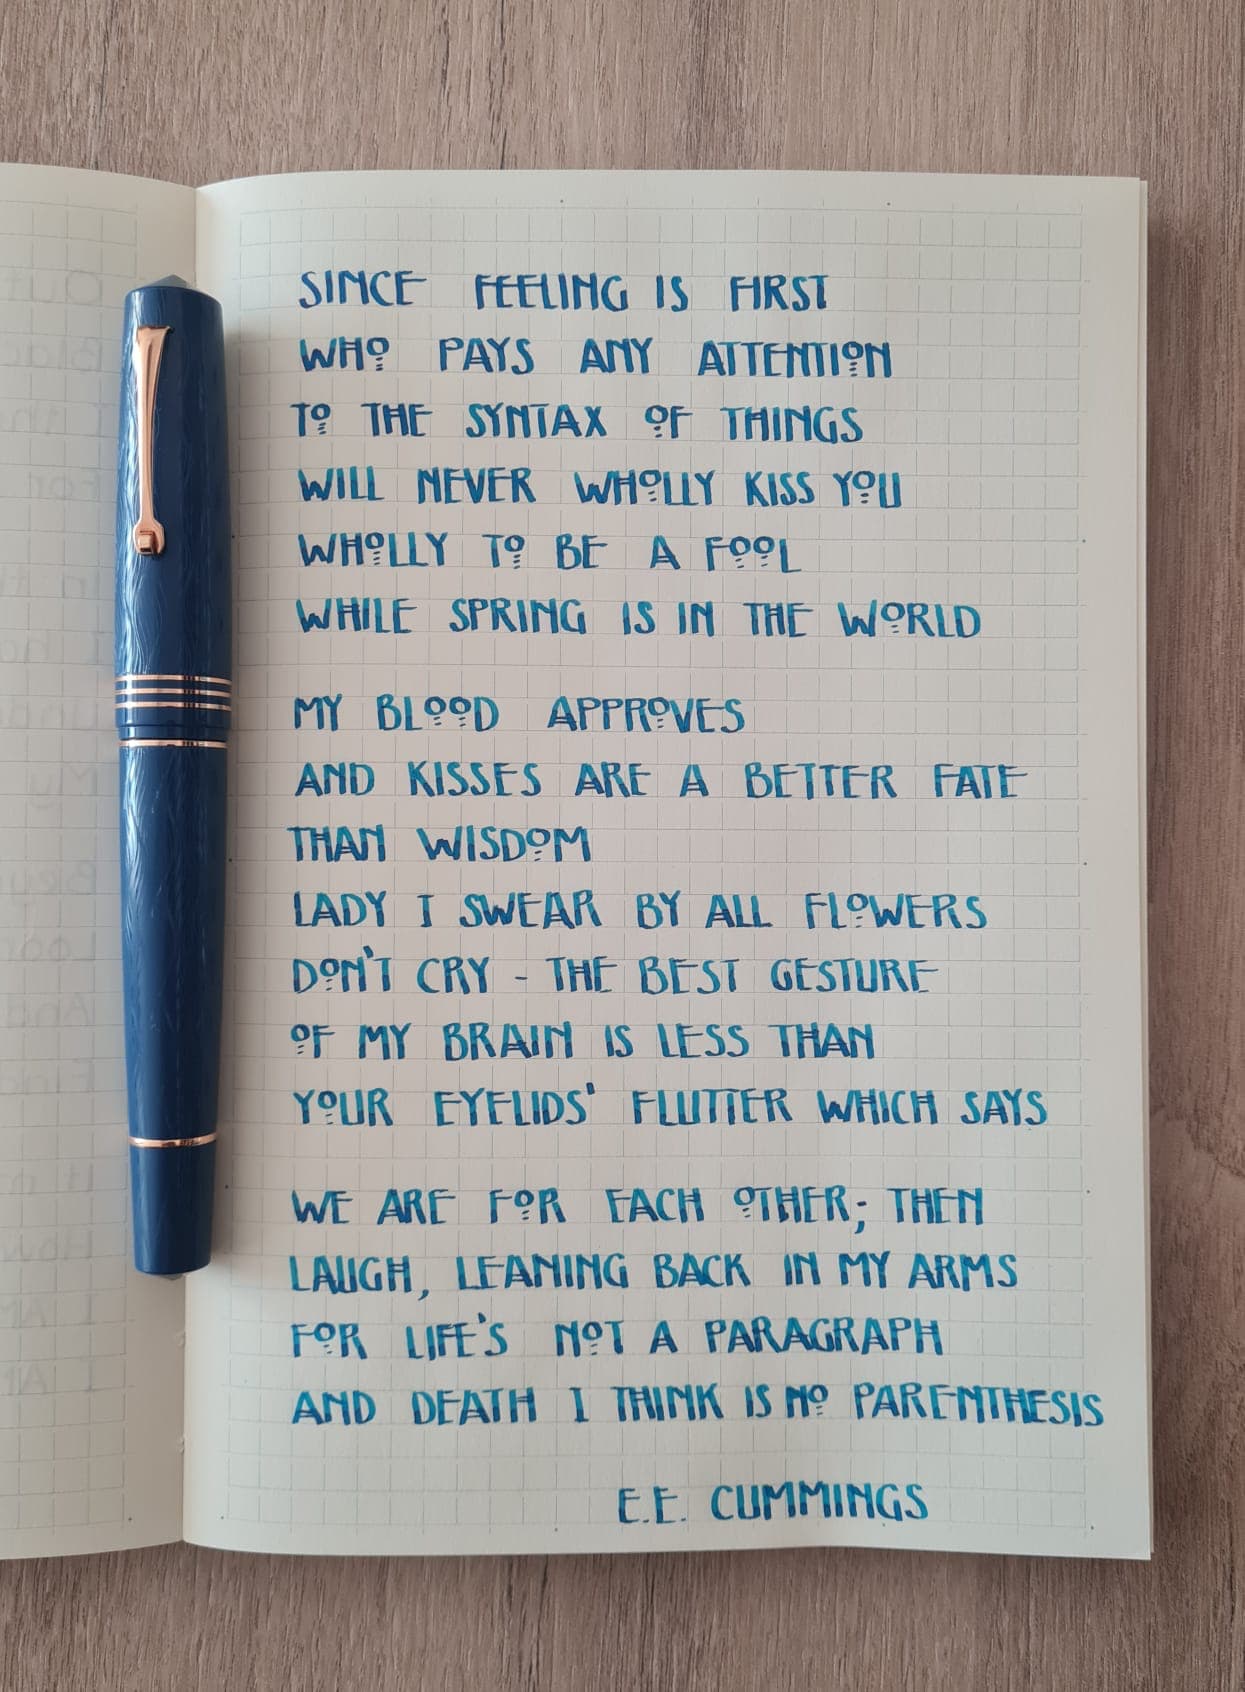 SINCE FEELING IS FIRST
WHO PAYS ANY ATTENTION
TO THE SYNTAX OF THINGS
WILL NEVER WHOLLY KISS YOU
WHOLLY TO BE A FOOL
WHILE SPRING IS IN THE WORLD
MY BLOOD APPROVES
AND KISSES ARE A BETTER FATE
THAN WISDOM
LADY I SWEAR BY ALL FLOWERS
DON'T CRY - THE BEST GESTURE
OF MY BRAIN IS LESS THAN
YOUR EYELIDS' FLUTTER WHICH SAYS
WE ARE FOR EACH OTHER; THEN
LAUGH, LEANING BACK IN MY ARMS
FOR LIFE'S NOT A PARAGRAPH
AND DEATH I THINK IS NO PARENTHESIS
E.E. CUMMINGS